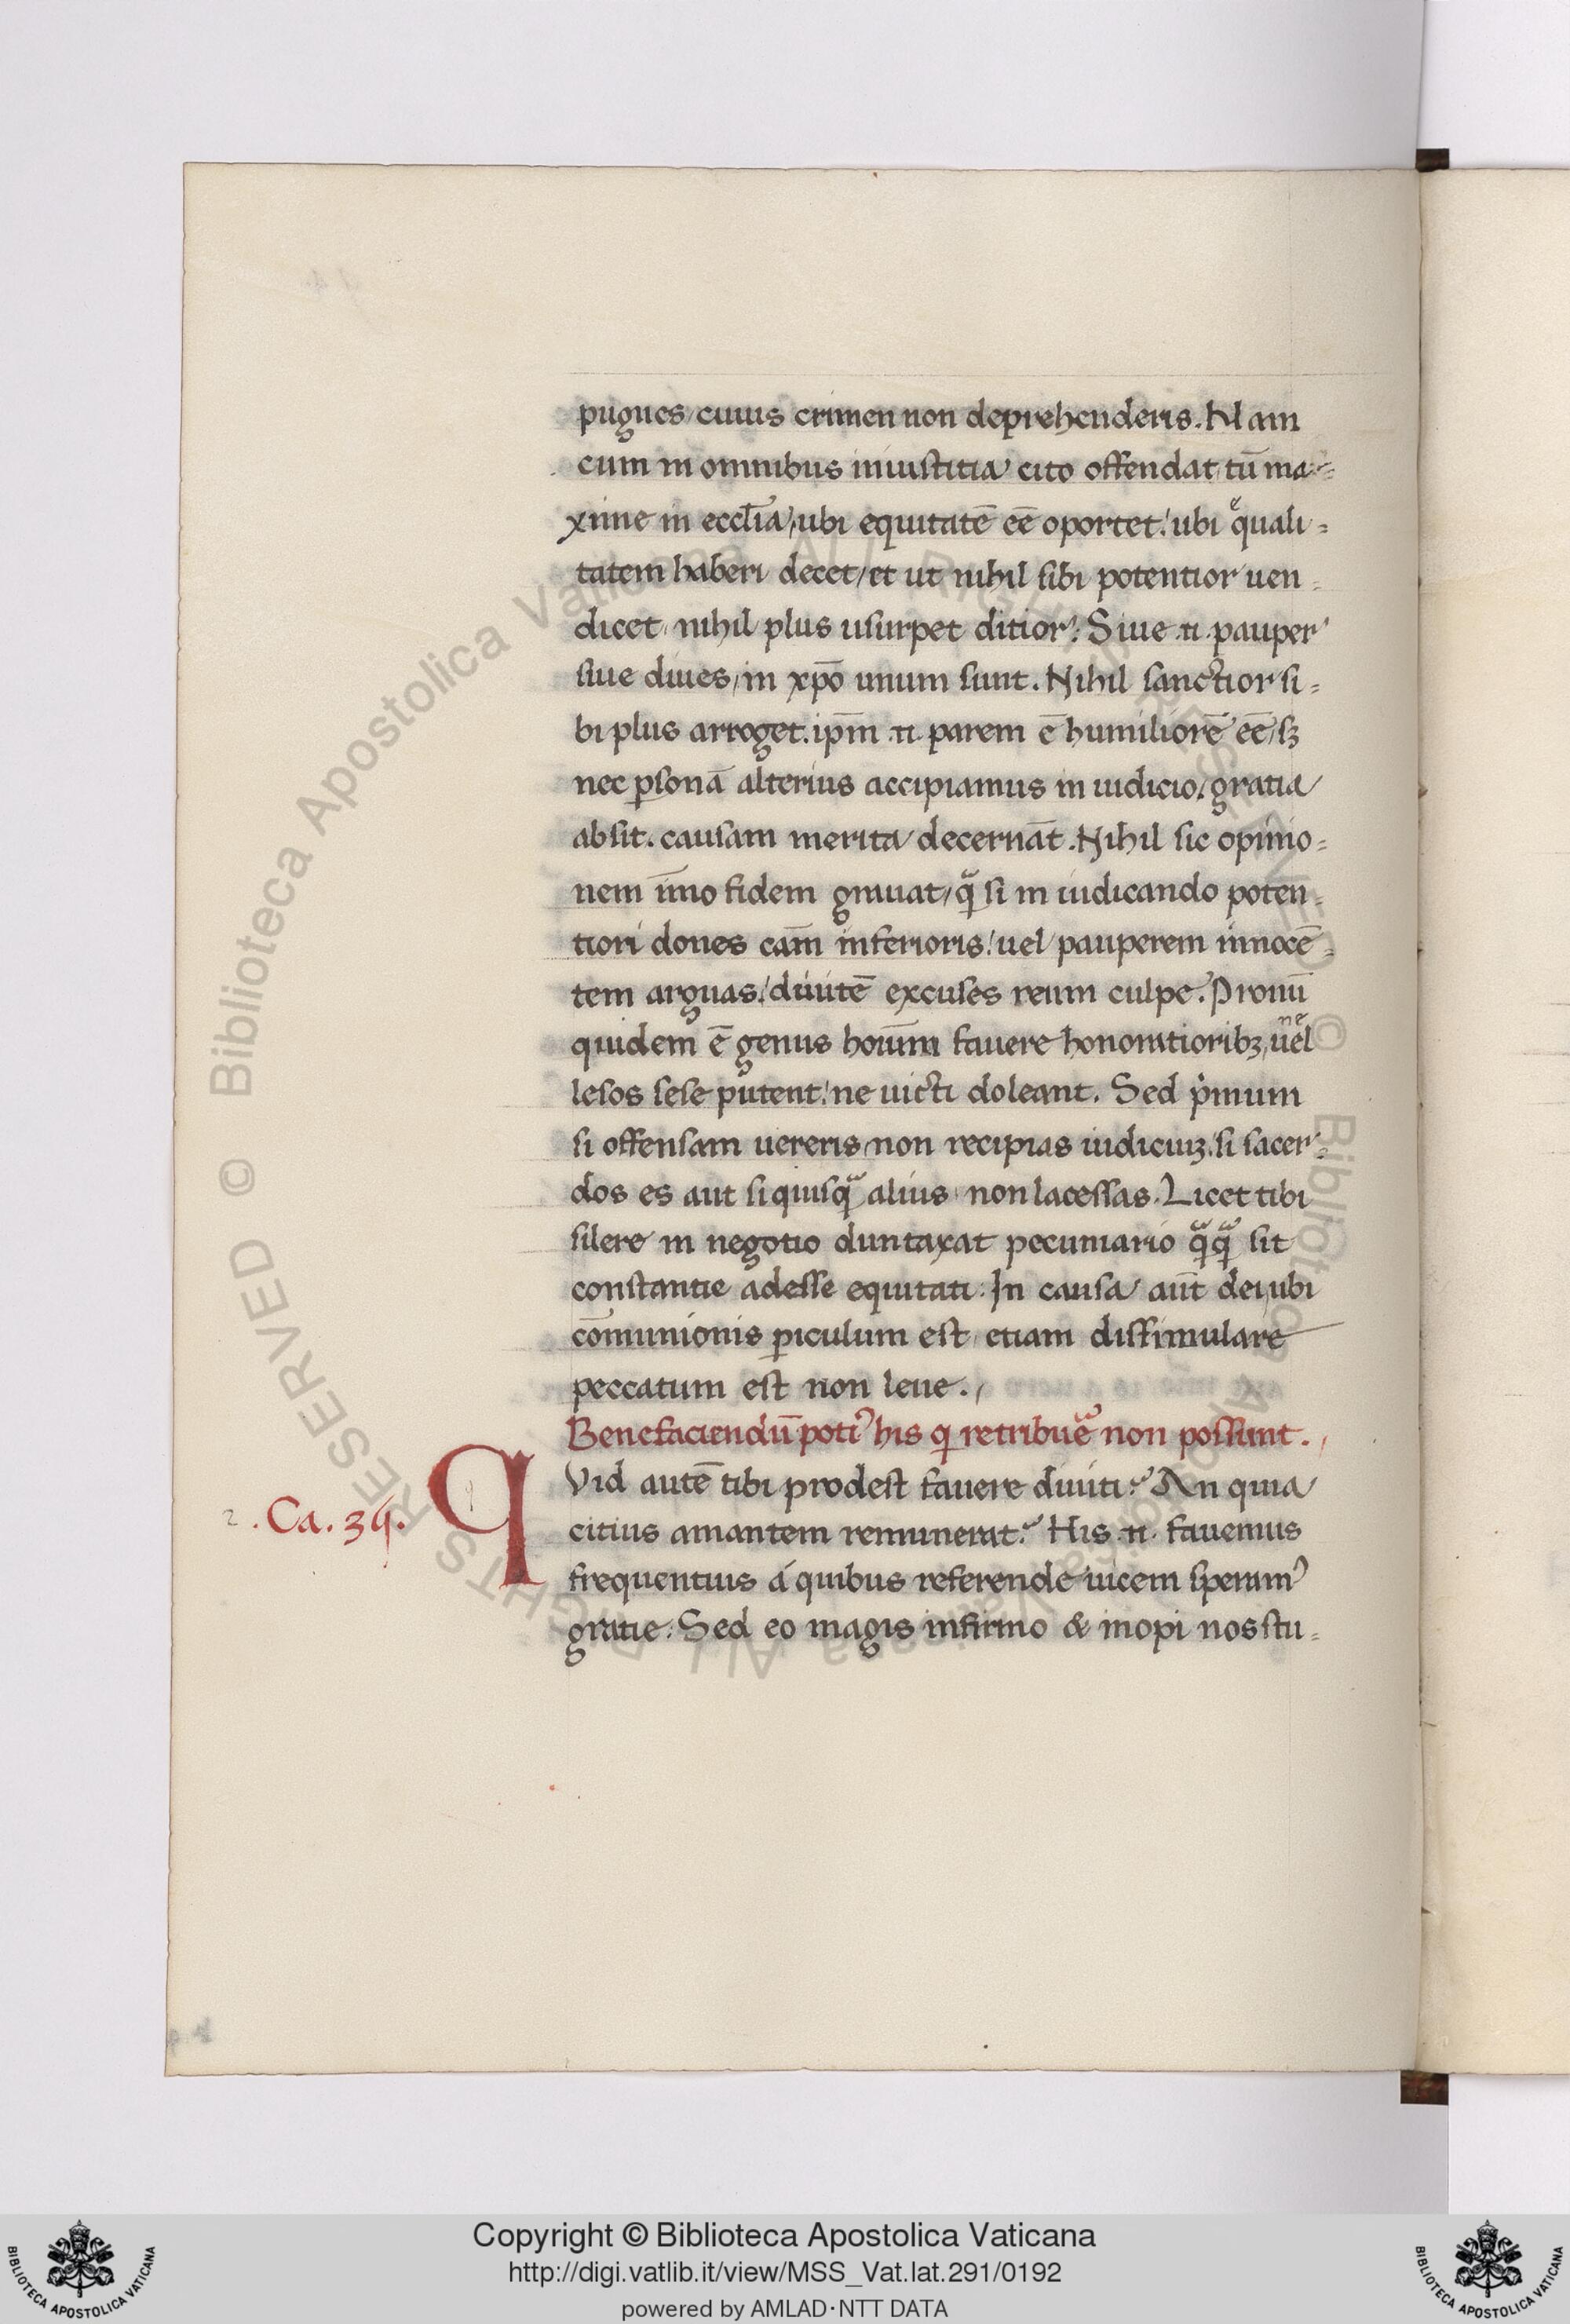 pugnes / cuius crimen non deprehenderis. Nam
cum in omnibus iniustitia cito offendat tū ma=
xime in eccl̄ia, ubi equitatē eē oportet! ubi equali=
tatem haberi decet / et ut nihil sibi potentior uen=
dicet nihil plus usurpet ditior: Siue .n. pauper
siue diues, in xp̄o unum sunt. Nihil sanctior si=
bi plus arroget. ip̄m .n. parem ē humiliorē eē, sꝫ
nec ꝑsonā alterius accipiamus in iudicio, gratia
absit. causam merita decernāt. Nihil sic opinio=
nem īmo fidem grauat, qͣ si in iudicando poten=
tiori dones cām inferioris! uel pauperem innocē=
tem arguas, diuitē excuses reum culpe. Pronū
quidem ē genus hoīum fauere honoratioribꝫ, ne uel
lesos sese putent! ne uicti doleant. Sed pͥmum
si offensam uereris, non recipias iudiciuꝫ. si sacer=
dos es aut si quisqͣ alius non lacessas. Licet tibi
silere in negotio duntaxat pecuniario qͣqͣ sit
constantie adesse equitati: In causa aūt dei, ubi
cōmunionis ꝑiculum est, etiam dissimulare
peccatum est non leue.,
Benefaciendū poti⁹ his q̇ retribuͤe non possunt.,
.Ca. 34. Q
Vid autē tibi prodest fauere diuiti? An quia
citius amantem remunerat? His .n. fauemus
frequentius á quibus referende uicem speram⁹
gratie: Sed eo magis infirmo & inopi nos stu=
Copyright © Biblioteca Apostolica Vaticana
http://digi.vatlib.it/view/MSS_Vat.lat.291/0192
powered by AMLAD·NTT DATA
BIBLIOTECA APOSTOLICA VATICANA
BIBLIOTECA APOSTOLICA VATICANA